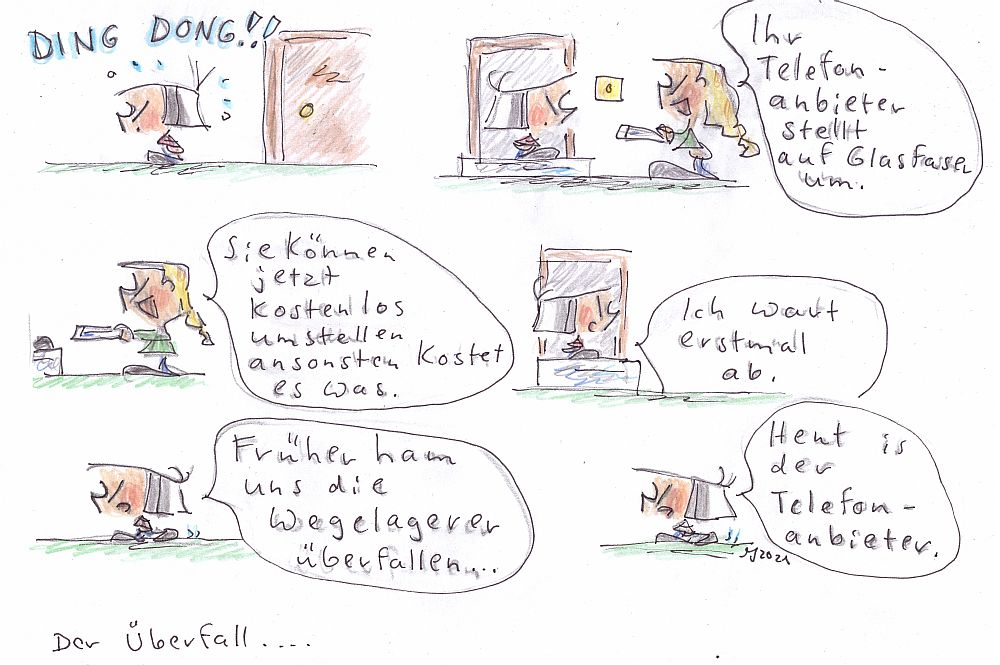 DING DONG!!
Ihr
Telefon-
anbieter
stellt
auf Glasfaser
um.
Sie können
jetzt
kostenlos
umstellen
ansonsten kostet
es was.
Ich wart
erstmal
ab.
Früher ham
uns die
Wegelagerer
überfallen...
Heut is
der
Telefon-
anbieter.
SJ2021
Der Überfall....